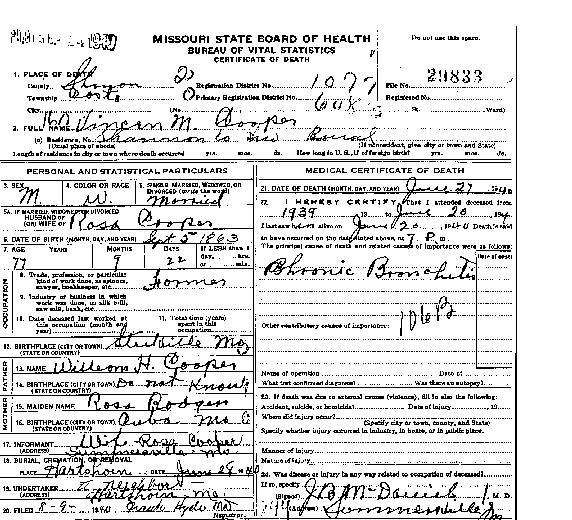 MISSOURI STATE BOARD OF HEALTH
BUREAU OF VITAL STATISTICS
CERTIFICATE OF DEATH
Do not use this space.
1. PLACE OF DEATH
County
Registration District No. 1077
File No. 29833
Township
Primary Registration District No.
Registered No.
City
(No.
St.
Ward)
2. FULL NAME Vincen M. Cooper
(a) Residence, No. Shannon Co
(Usual place of abode)
(If nonresident, give city or town and State)
Length of residence in city or town where death occurred yrs. mos. ds. How long in U. S., if of foreign birth? yrs. mos. ds.
PERSONAL AND STATISTICAL PARTICULARS
3. SEX
M
4. COLOR OR RACE
W.
5. SINGLE, MARRIED, WIDOWED, OR DIVORCED (write the word)
Married
5A. IF MARRIED, WIDOWED, OR DIVORCED
HUSBAND OF
(OR) WIFE OF Rosa Cooper
6. DATE OF BIRTH (MONTH, DAY, AND YEAR) Sept 5 1863
7. AGE YEARS MONTHS DAYS If LESS than 1 day, hrs. or min.
77 9 22
OCCUPATION
8. Trade, profession, or particular kind of work done, as spinner, sawyer, bookkeeper, etc.
Farmer
9. Industry or business in which work was done, as silk mill, saw mill, bank, etc.
10. Date deceased last worked at this occupation (month and year)
11. Total time (years) spent in this occupation
12. BIRTHPLACE (CITY OR TOWN) Mo
(STATE OR COUNTRY)
FATHER
13. NAME William H. Cooper
14. BIRTHPLACE (CITY OR TOWN) Do not Know
(STATE OR COUNTRY)
MOTHER
15. MAIDEN NAME Rosa
16. BIRTHPLACE (CITY OR TOWN) Cuba Mo
(STATE OR COUNTRY)
17. INFORMANT Wife Rosa Cooper
(ADDRESS) Summersville Mo
18. BURIAL, CREMATION, OR REMOVAL
PLACE Hartshorn DATE June 28 1940
19. UNDERTAKER Neighbors
(ADDRESS) Hartshorn Mo.
20. FILED 1940
Registrar
MEDICAL CERTIFICATE OF DEATH
21. DATE OF DEATH (MONTH, DAY, AND YEAR) June 27 1940
22. I HEREBY CERTIFY, That I attended deceased from
1939 to June 20, 1940
I last saw him alive on June 20, 1940 Death is said
to have occurred on the date stated above, at 7 P.m.
The principal cause of death and related causes of importance were as follows:
Date of onset
Chronic Bronchitis
Other contributory causes of importance:
Name of operation Date of
What test confirmed diagnosis? Was there an autopsy?
23. If death was due to external causes (violence), fill in also the following:
Accident, suicide, or homicide? Date of injury 19
Where did injury occur?
(Specify city or town, county, and State)
Specify whether injury occurred in industry, in home, or in public place.
Manner of injury
Nature of injury
24. Was disease or injury in any way related to occupation of deceased?
If so, specify
(Signed) J B McDaniel, M. D.
(Address) Summersville Mo